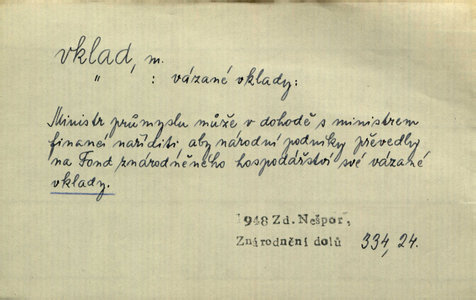 vklad, m.
" : vázané vklady:
Ministr průmyslu může v dohodě s ministrem
financí naříditi, aby národní podniky převedly
na Fond znárodněného hospodářství své vázané
vklady.
1948 Zd. Nešpor,
Znárodnění dolů 334, 24.